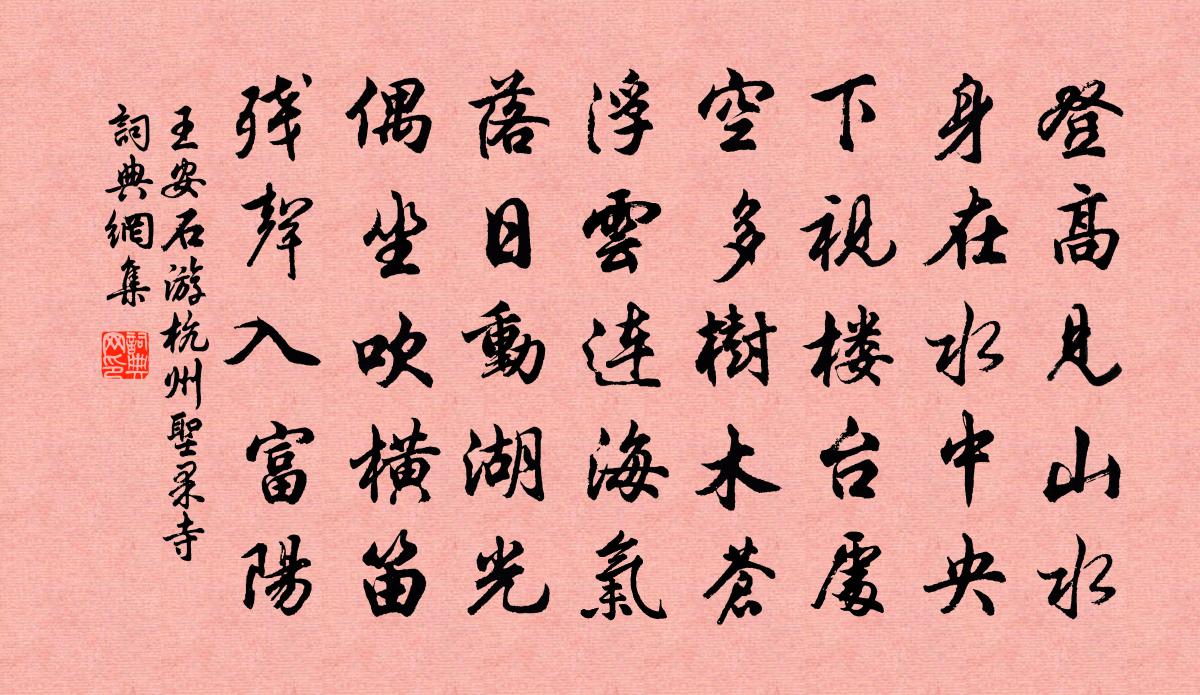 登高見山水
身在水中央
下視楼台處
空多樹木蒼
浮雲連海氣
落日動湖光
偶坐吹横笛
残聲入富陽
王安石游杭州聖果寺
詞典網集
詞典网印